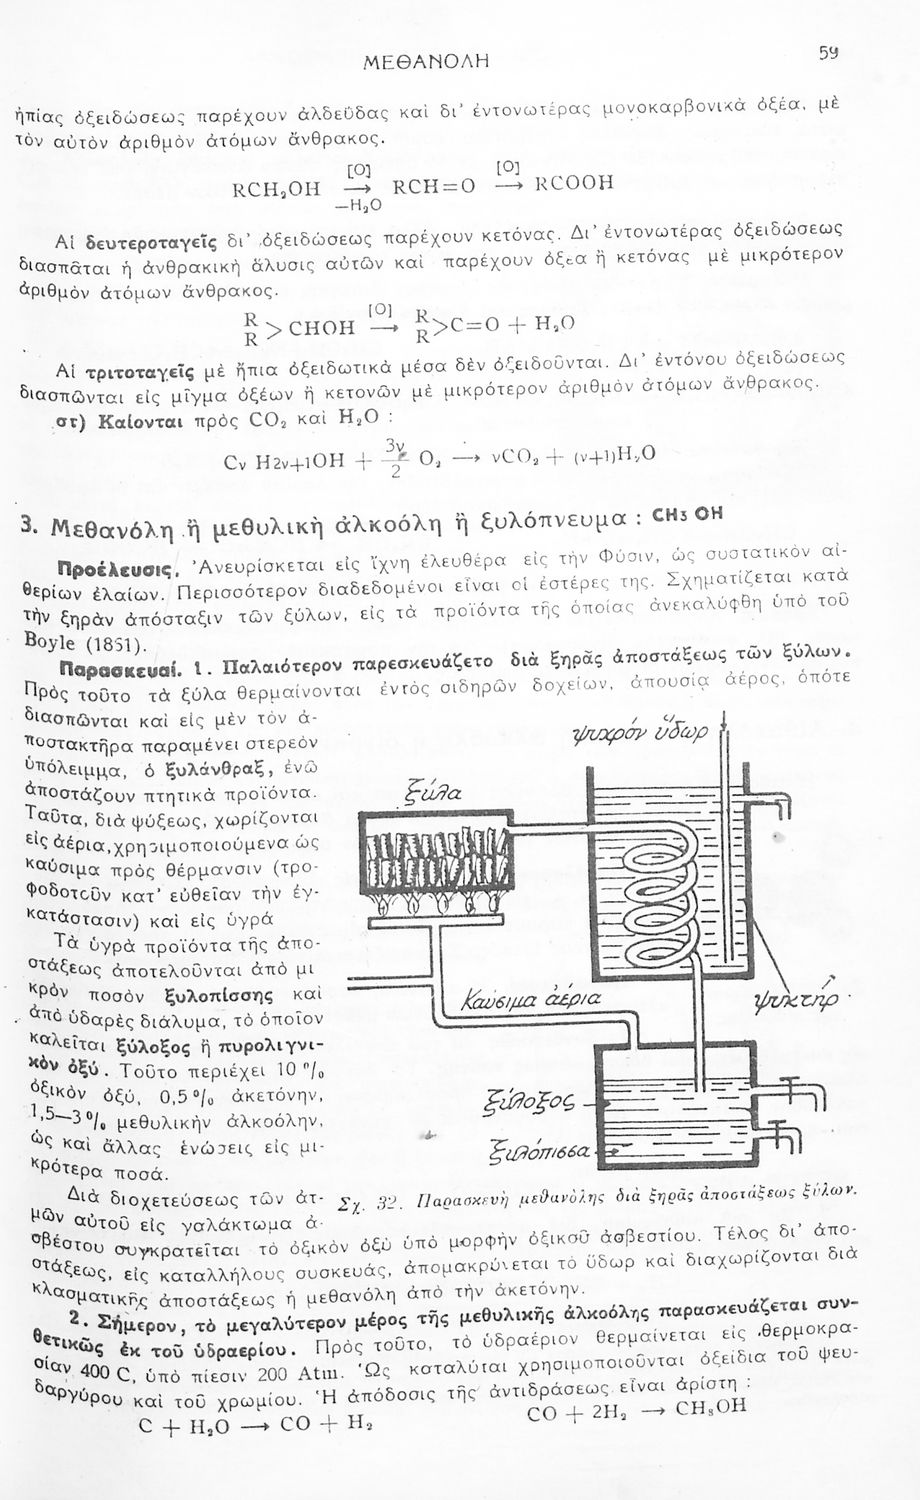 ΜΕΘΑΝΟΛΗ
59
ἠπίας ὀξειδώσεως παρέχουν ἀλδεΰδας καὶ δι' ἐντονωτέρας μονοκαρβονικὰ ὀξέα, μὲ
τὸν αὐτὸν ἀριθμὸν ἀτόμων ἄνθρακος.
[O] [O]
RCH₂OH ⟶ RCH=O ⟶ RCOOH
—H₂O
Αἱ δευτεροταγεῖς δι' ὀξειδώσεως παρέχουν κετόνας. Δι' ἐντονωτέρας ὀξειδώσεως
διασπᾶται ἡ ἀνθρακικὴ ἅλυσις αὐτῶν καὶ παρέχουν ὀξέα ἢ κετόνας μὲ μικρότερον
ἀριθμὸν ἀτόμων ἄνθρακος.
R [O] R
> CHOH ⟶ >C=O + H₂O
R R
Αἱ τριτοταγεῖς μὲ ἤπια ὀξειδωτικὰ μέσα δὲν ὀξειδοῦνται. Δι' ἐντόνου ὀξειδώσεως
διασπῶνται εἰς μῖγμα ὀξέων ἢ κετονῶν μὲ μικρότερον ἀριθμὸν ἀτόμων ἄνθρακος.
στ) Καίονται πρὸς CO₂ καὶ H₂O :
Cν H2ν+1OH + 3ν/2 O₂ ⟶ νCO₂ + (ν+1)H₂O
3. Μεθανόλη ἢ μεθυλικὴ ἀλκοόλη ἢ ξυλόπνευμα : CH₃ OH
Προέλευσις. Ἀνευρίσκεται εἰς ἴχνη ἐλευθέρα εἰς τὴν Φύσιν, ὡς συστατικὸν αἰ-
θερίων ἐλαίων. Περισσότερον διαδεδομένοι εἶναι οἱ ἐστέρες της. Σχηματίζεται κατὰ
τὴν ξηρὰν ἀπόσταξιν τῶν ξύλων, εἰς τὰ προϊόντα τῆς ὁποίας ἀνεκαλύφθη ὑπὸ τοῦ
Boyle (1851).
Παρασκευαί. 1. Παλαιότερον παρεσκευάζετο διὰ ξηρᾶς ἀποστάξεως τῶν ξύλων.
Πρὸς τοῦτο τὰ ξύλα θερμαίνονται ἐντὸς σιδηρῶν δοχείων, ἀπουσίᾳ ἀέρος, ὁπότε
διασπῶνται καὶ εἰς μὲν τὸν ἀ-
ποστακτῆρα παραμένει στερεὸν
ὑπόλειμμα, ὁ ξυλάνθραξ, ἐνῶ
ἀποστάζουν πτητικὰ προϊόντα.
Ταῦτα, διὰ ψύξεως, χωρίζονται
εἰς ἀέρια, χρησιμοποιούμενα ὡς
καύσιμα πρὸς θέρμανσιν (τρο-
φοδοτοῦν κατ' εὐθεῖαν τὴν ἐγ-
κατάστασιν) καὶ εἰς ὑγρά
Τὰ ὑγρὰ προϊόντα τῆς ἀπο-
στάξεως ἀποτελοῦνται ἀπὸ μι
κρὸν ποσὸν ξυλοπίσσης καὶ
ἀπὸ ὑδαρὲς διάλυμα, τὸ ὁποῖον
καλεῖται ξύλοξος ἢ πυρολιγνι-
κὸν ὀξύ. Τοῦτο περιέχει 10 %
ὀξικὸν ὀξύ, 0,5 % ἀκετόνην,
1,5—3 % μεθυλικὴν ἀλκοόλην,
ὡς καὶ ἄλλας ἑνώσεις εἰς μι-
κρότερα ποσά.
ψυχρόν ὕδωρ
ξύλα
Καύσιμα ἀέρια
ψυκτήρ
Ξύλοξος
Ξυλόπισσα
Σχ. 32. Παρασκευὴ μεθανόλης διὰ ξηρᾶς ἀποστάξεως ξύλων.
Διὰ διοχετεύσεως τῶν ἀτ-
μῶν αὐτοῦ εἰς γαλάκτωμα ἀ-
σβέστου συγκρατεῖται τὸ ὀξικὸν ὀξὺ ὑπὸ μορφὴν ὀξικοῦ ἀσβεστίου. Τέλος δι' ἀπο-
στάξεως, εἰς καταλλήλους συσκευάς, ἀπομακρύνεται τὸ ὕδωρ καὶ διαχωρίζονται διὰ
κλασματικῆς ἀποστάξεως ἡ μεθανόλη ἀπὸ τὴν ἀκετόνην.
2. Σήμερον, τὸ μεγαλύτερον μέρος τῆς μεθυλικῆς ἀλκοόλης παρασκευάζεται συν-
θετικῶς ἐκ τοῦ ὑδραερίου. Πρὸς τοῦτο, τὸ ὑδραέριον θερμαίνεται εἰς θερμοκρα-
σίαν 400 C, ὑπὸ πίεσιν 200 Atm. Ὡς καταλύται χρησιμοποιοῦνται ὀξείδια τοῦ ψευ-
δαργύρου καὶ τοῦ χρωμίου. Ἡ ἀπόδοσις τῆς ἀντιδράσεως εἶναι ἀρίστη :
C + H₂O ⟶ CO + H₂ CO + 2H₂ ⟶ CH₃OH